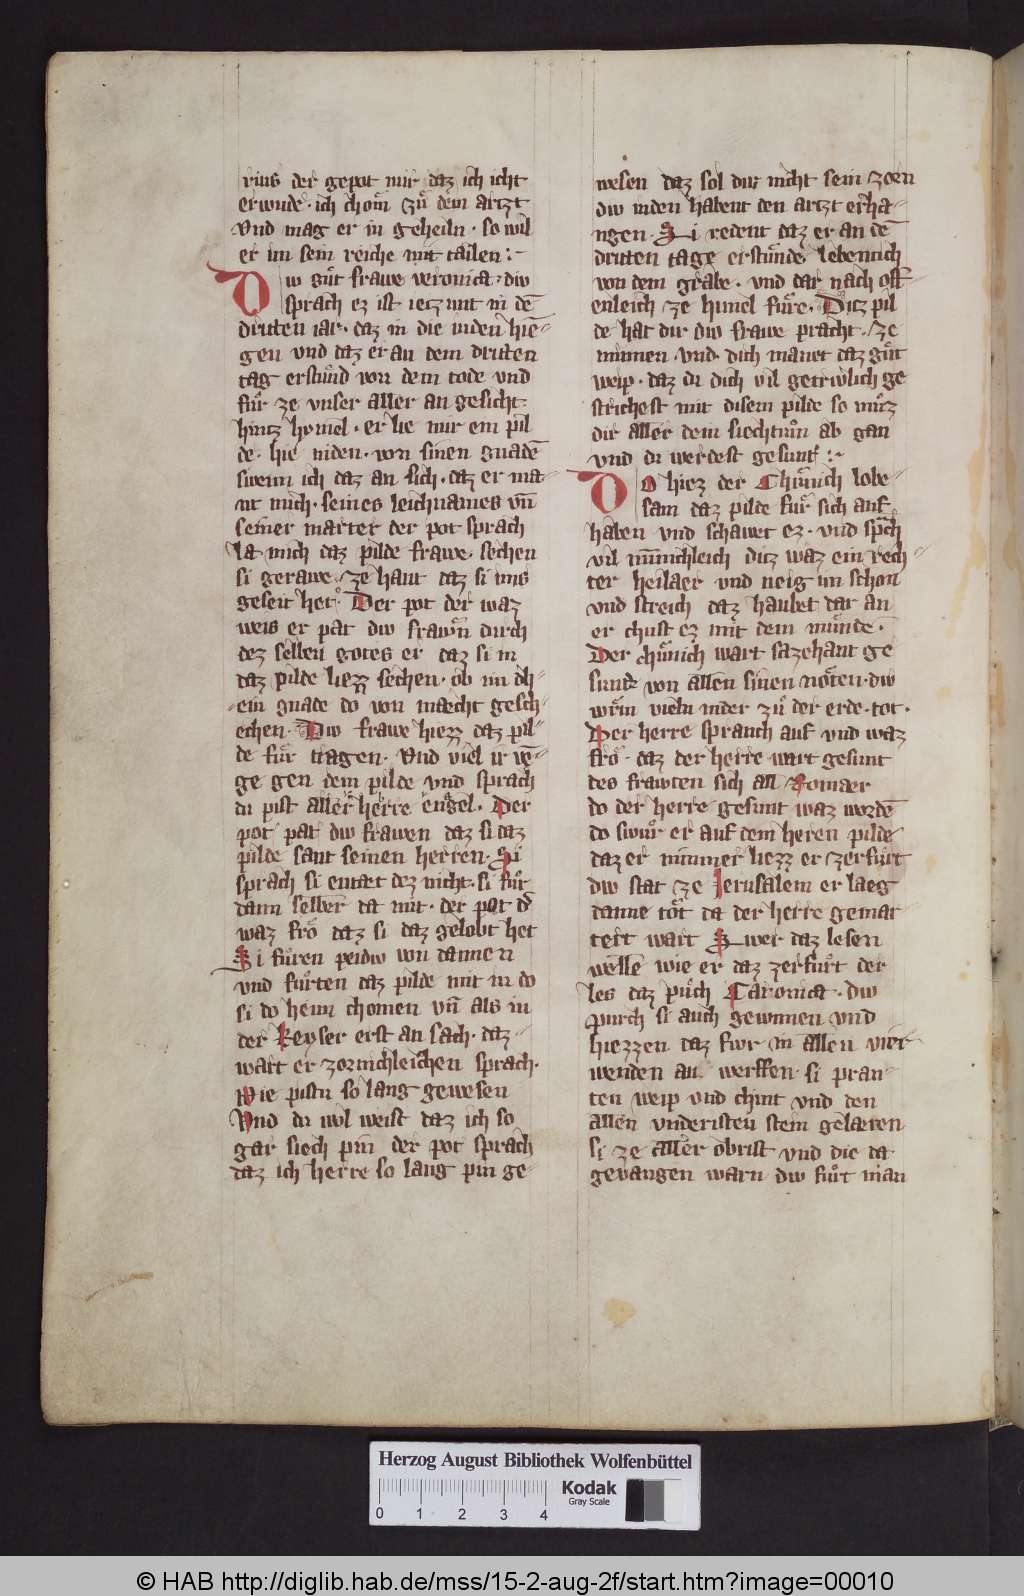 rius der gepot mir daz ich icht
erwinde · ich chom zů dem artzt
Vnd mag er in geheiln · so wil
er im sein reiche mit tailen :·
Dw gůt frawe veronica · diw
sprach ez ist ietz mit in dē
dritten iar · daz in die iuden hie-
gen vnd daz er an dem dritten
tag erstůnd von dem tode vnd
fůr ze vnser aller an gesicht
hintz himel · er lie mir ein pil
de · hie niden · von sinen gnadē
swenn ich daz an sich · daz er ma-
nt mich · seines leichnames vn̄
seiner marter der pot sprach
la mich daz pilde frawe · sechen
si gerawe · ze hant daz si ims
geseit het · Der pot der waz
weis er pat diw frawn durch
dez selben gotes er daz si in
daz pilde liezz sechen · ob im dh-
ein gnade do von mæcht gesch-
echen · Diw frawe hiezz daz pil-
de fůr tragen · Vnd viel ir wē-
ge gen dem pilde vnd sprach
du pist aller herre engel · Der
pot pat diw frawen daz si daz
pilde sant seinen herren · Si
sprach si entæt dez nicht · si fůr
dann selber da mit · der pot d
waz fro daz si daz gelobt het
Si fůren peidw von dannen
vnd fůrten daz pilde mit in do
si do heim chomen vn̄ als in
der keyser erst an sach · daz
wart er zornichleichen sprach ·
Wie pistu so lang gewesen
Vnd du wol weist daz ich so
gar siech pin der pot sprach
daz ich herre so lang pin ge-
wesen daz sol dir nicht sein zorn
diw iuden habent den artzt erha-
ngen · Si redent daz er an dē
dritten tage erstůnde lebentich
von dem grabe · vnd dar nach off-
enleich ze himel fůre · Ditz pil
de hat dir diw frawe pracht · ze
minnen · vnd dich manet daz gůt
weip · daz du dich vil getriwlich ge
strichest mit disem pilde so můz
dir aller dein siechtum ab gan
vnd du werdest gesunt :·
Do hiez der Chůnich lobe-
sam daz pilde fůr sich auf
haben vnd schawet ez · vnd sp̄ch
vil minnichleich ditz waz ein rech-
ter heilaer vnd neig im schon
vnd streich daz haubet dar an
er chust ez mit dem munde ·
Der chůnich wart sazehant ge
sunt von allen sinen nöten · diw
wrm vieln nider zů der erde · tot ·
Der herre sprauch auf vnd waz
fro · daz der herre wart gesunt
des frawten sich all Romaer
do der herre gesunt waz wordē
do swůr er auf dem heren pilde
daz er nimmer liezz er zerfůrt
diw stat ze Jerusalem er laeg
danne tot da der herre gemar-
tert wart Swer daz lesen
welle wie er daz zerfůrt der
les daz půch Caronica · diw
purch si auch gewinnen vnd
hiezzen daz fiwr in allen vier
wenden an werffen · si pran-
ten weip vnd chint vnd den
allen vnderisten stein gelæten
si ze aller obrist vnd die da
gevangen warn diw fůrt man
Herzog August Bibliothek Wolfenbüttel
Kodak
Gray Scale
0 1 2 3 4
© HAB http://diglib.hab.de/mss/15-2-aug-2f/start.htm?image=00010